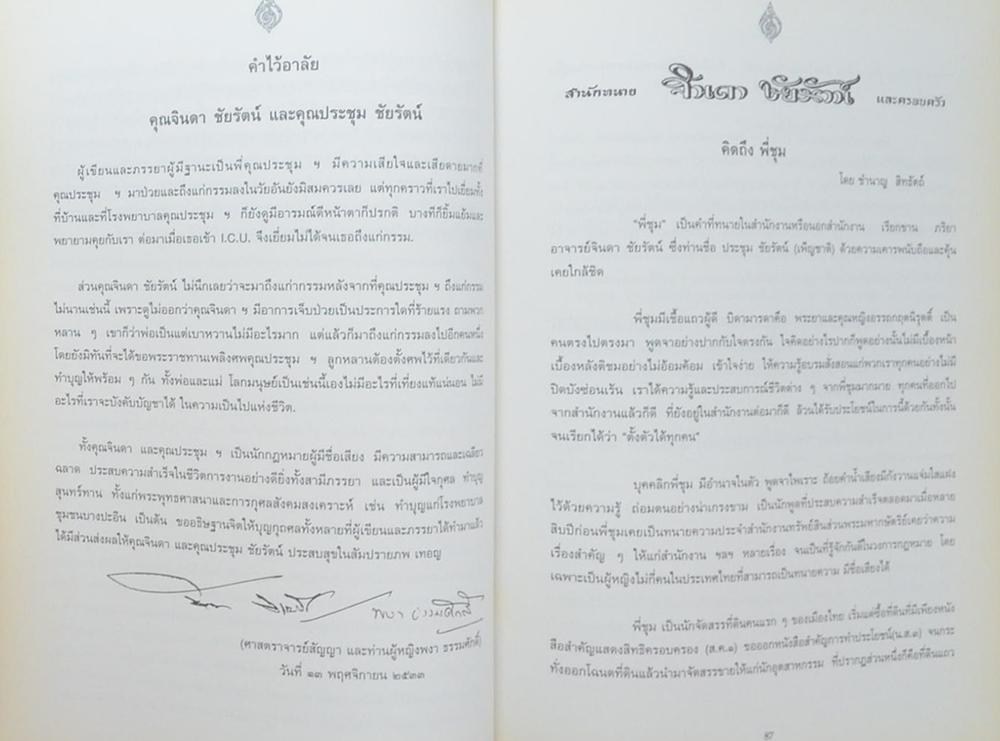 คำไว้อาลัย
คุณจินดา ชัยรัตน์ และคุณประชุม ชัยรัตน์
ผู้เขียนและภรรยาผู้มีฐานะเป็นพี่คุณประชุม ฯ มีความเสียใจและเสียดายมากที่
คุณประชุม ฯ มาป่วยและถึงแก่กรรมลงในวัยอันยังมิสมควรเลย แต่ทุกคราวที่เราไปเยี่ยมทั้ง
ที่บ้านและที่โรงพยาบาลคุณประชุม ฯ ก็ยังดูมีอารมณ์ดีหน้าตาก็ปรกติ บางทีก็ยิ้มแย้มและ
พยายามคุยกับเรา ต่อมาเมื่อเธอเข้า I.C.U. จึงเยี่ยมไม่ได้จนเธอถึงแก่กรรม.
ส่วนคุณจินดา ชัยรัตน์ ไม่นึกเลยว่าจะมาถึงแก่กรรมหลังจากที่คุณประชุม ฯ ถึงแก่กรรม
ไม่นานเช่นนี้ เพราะดูไม่ออกว่าคุณจินดา ฯ มีอาการเจ็บป่วยเป็นประการใดที่ร้ายแรง ถามพวก
หลาน ๆ เขาก็ว่าพ่อเป็นแต่เบาหวานไม่มีอะไรมาก แต่แล้วก็มาถึงแก่กรรมลงไปอีกคนหนึ่ง
โดยยังมิทันที่จะได้ขอพระราชทานเพลิงศพคุณประชุม ฯ ลูกหลานต้องตั้งศพไว้ที่เดียวกันและ
ทำบุญให้พร้อม ๆ กัน ทั้งพ่อและแม่ โลกมนุษย์เป็นเช่นนี้เองไม่มีอะไรที่เที่ยงแท้แน่นอน ไม่มี
อะไรที่เราจะบังคับบัญชาได้ ในความเป็นไปแห่งชีวิต.
ทั้งคุณจินดา และคุณประชุม ฯ เป็นนักกฎหมายผู้มีชื่อเสียง มีความสามารถและเฉลียว
ฉลาด ประสบความสำเร็จในชีวิตการงานอย่างดียิ่งทั้งสามีภรรยา และเป็นผู้มีใจกุศล ทำบุญ
สุนทร์ทาน ทั้งแก่พระพุทธศาสนาและการกุศลสังคมสงเคราะห์ เช่น ทำบุญแก่โรงพยาบาล
ชุมชนบางปะอิน เป็นต้น ขออธิษฐานจิตให้บุญกุศลทั้งหลายที่ผู้เขียนและภรรยาได้ทำมาแล้ว
ได้มีส่วนส่งผลให้คุณจินดา และคุณประชุม ชัยรัตน์ ประสบสุขในสัมปรายภพ เทอญ
พงา ธรรมศักดิ์
(ศาสตราจารย์สัญญา และท่านผู้หญิงพงา ธรรมศักดิ์)
วันที่ ๑๓ พฤศจิกายน ๒๕๓๓
สำนักทนาย จินดา ชัยรัตน์ และครอบครัว
คิดถึง พี่ชุม
โดย ชำนาญ สิทธัตถ์
"พี่ชุม" เป็นคำที่ทนายในสำนักงานหรือนอกสำนักงาน เรียกขาน ภริยา
อาจารย์จินดา ชัยรัตน์ ซึ่งท่านชื่อ ประชุม ชัยรัตน์ (เพ็ญชาติ) ด้วยความเคารพนับถือและคุ้น
เคยใกล้ชิด
พี่ชุมมีเชื้อแถวผู้ดี บิดามารดาคือ พระยาและคุณหญิงอรรถกฤตนิรุตติ์ เป็น
คนตรงไปตรงมา พูดจาอย่างปากกับใจตรงกัน ใจคิดอย่างไรปากก็พูดอย่างนั้นไม่มีเบื้องหน้า
เบื้องหลังติชมอย่างไม่อ้อมค้อม เข้าใจง่าย ให้ความรู้อบรมสั่งสอนแก่พวกเราทุกคนอย่างไม่มี
ปิดบังซ่อนเร้น เราได้ความรู้และประสบการณ์ชีวิตต่าง ๆ จากพี่ชุมมากมาย ทุกคนที่ออกไป
จากสำนักงานแล้วก็ดี ที่ยังอยู่ในสำนักงานต่อมาก็ดี ล้วนได้รับประโยชน์ในการนี้ด้วยกันทั้งนั้น
จนเรียกได้ว่า "ตั้งตัวได้ทุกคน"
บุคคลิกพี่ชุม มีอำนาจในตัว พูดจาไพเราะ ถ้อยคำน้ำเสียงมีกังวานแจ่มใสแฝง
ไว้ด้วยความรู้ ถ่อมตนอย่างน่าเกรงขาม เป็นนักพูดที่ประสบความสำเร็จตลอดมาเมื่อหลาย
สิบปีก่อนพี่ชุมเคยเป็นทนายความประจำสำนักงานทรัพย์สินส่วนพระมหากษัตริย์เคยว่าความ
เรื่องสำคัญ ๆ ให้แก่สำนักงาน ฯลฯ หลายเรื่อง จนเป็นที่รู้จักกันดีในวงการกฎหมาย โดย
เฉพาะเป็นผู้หญิงไม่กี่คนในประเทศไทยที่สามารถเป็นทนายความ มีชื่อเสียงได้
พี่ชุม เป็นนักจัดสรรที่ดินคนแรก ๆ ของเมืองไทย เริ่มแต่ซื้อที่ดินที่มีเพียงหนัง
สือสำคัญแสดงสิทธิครอบครอง (ส.ค.๑) ขอออกหนังสือสำคัญการทำประโยชน์(น.ส.๑) จนกระ
ทั่งออกโฉนดที่ดินแล้วนำมาจัดสรรขายให้แก่นักอุตสาหกรรม ที่ปรากฏส่วนหนึ่งก็คือที่ดินแถว
87